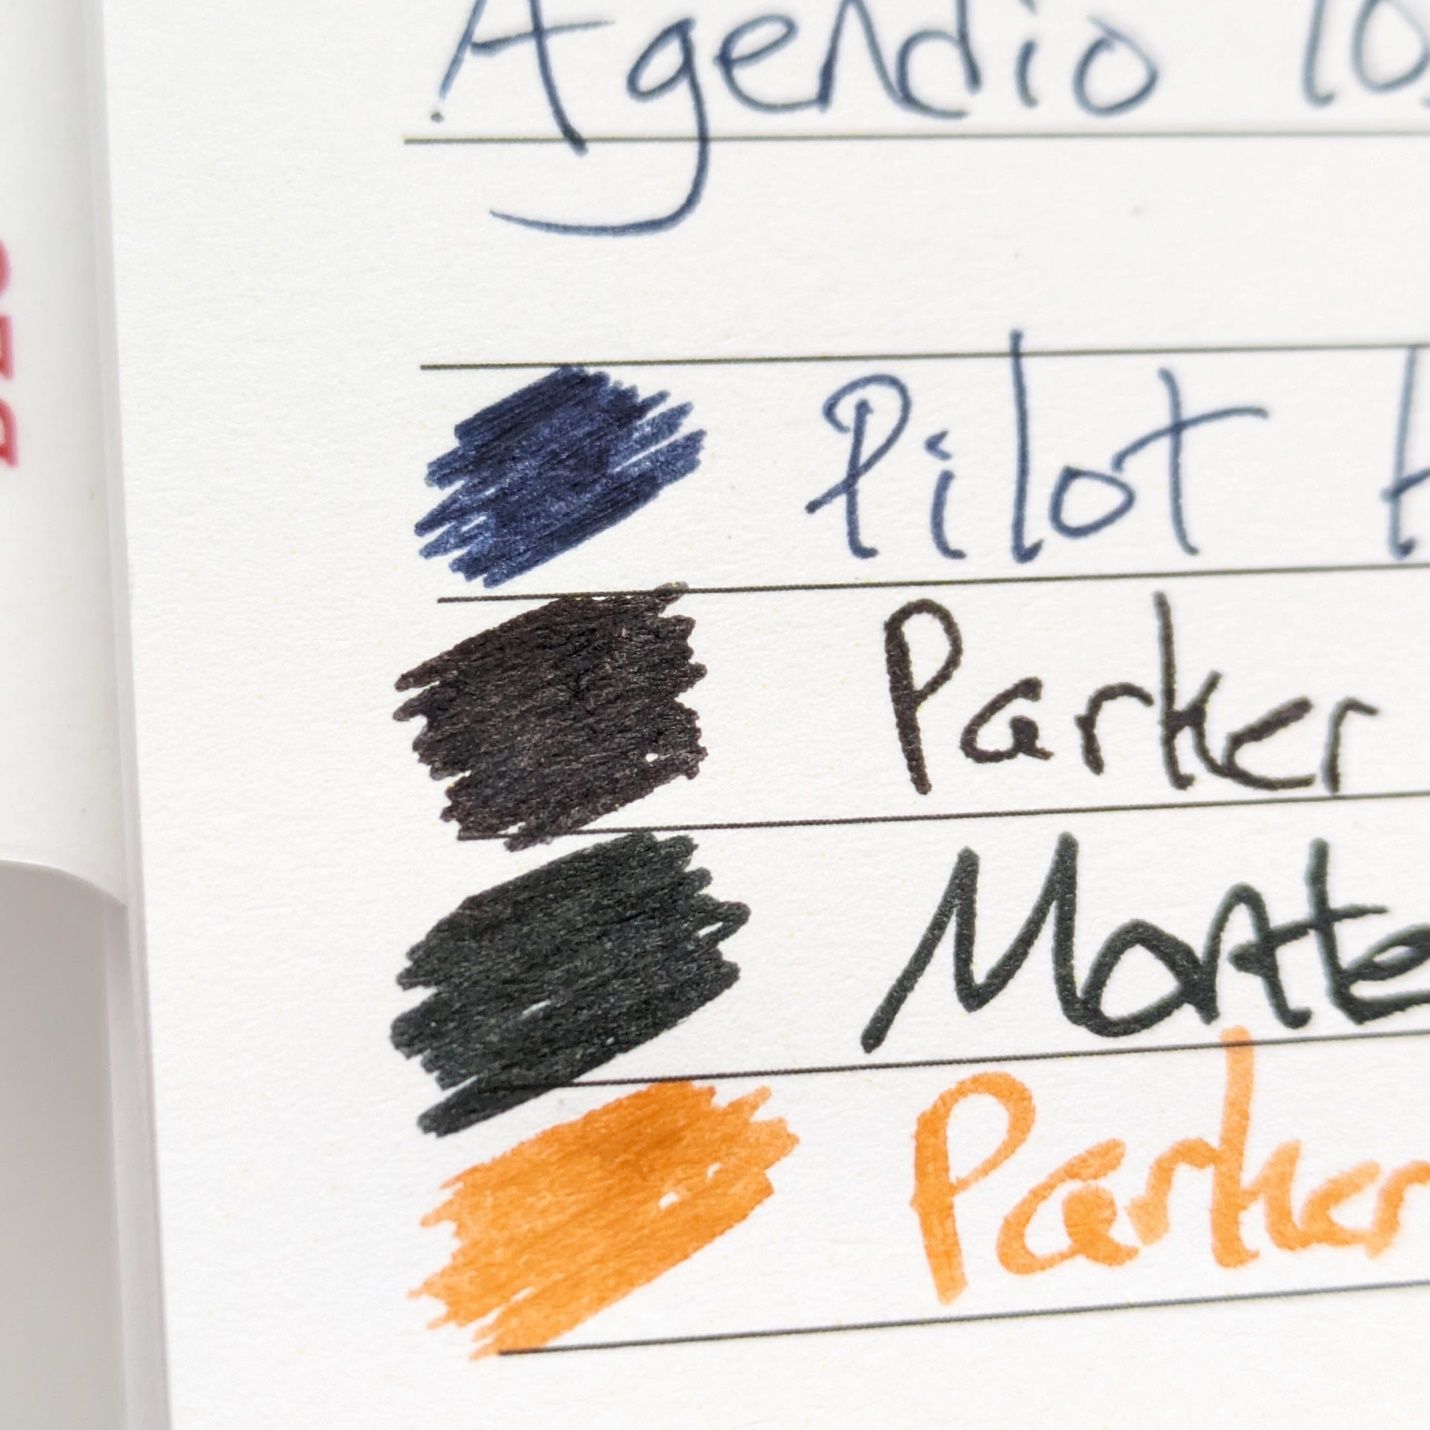 Agendio
Pilot
Parker
Monte
Parker